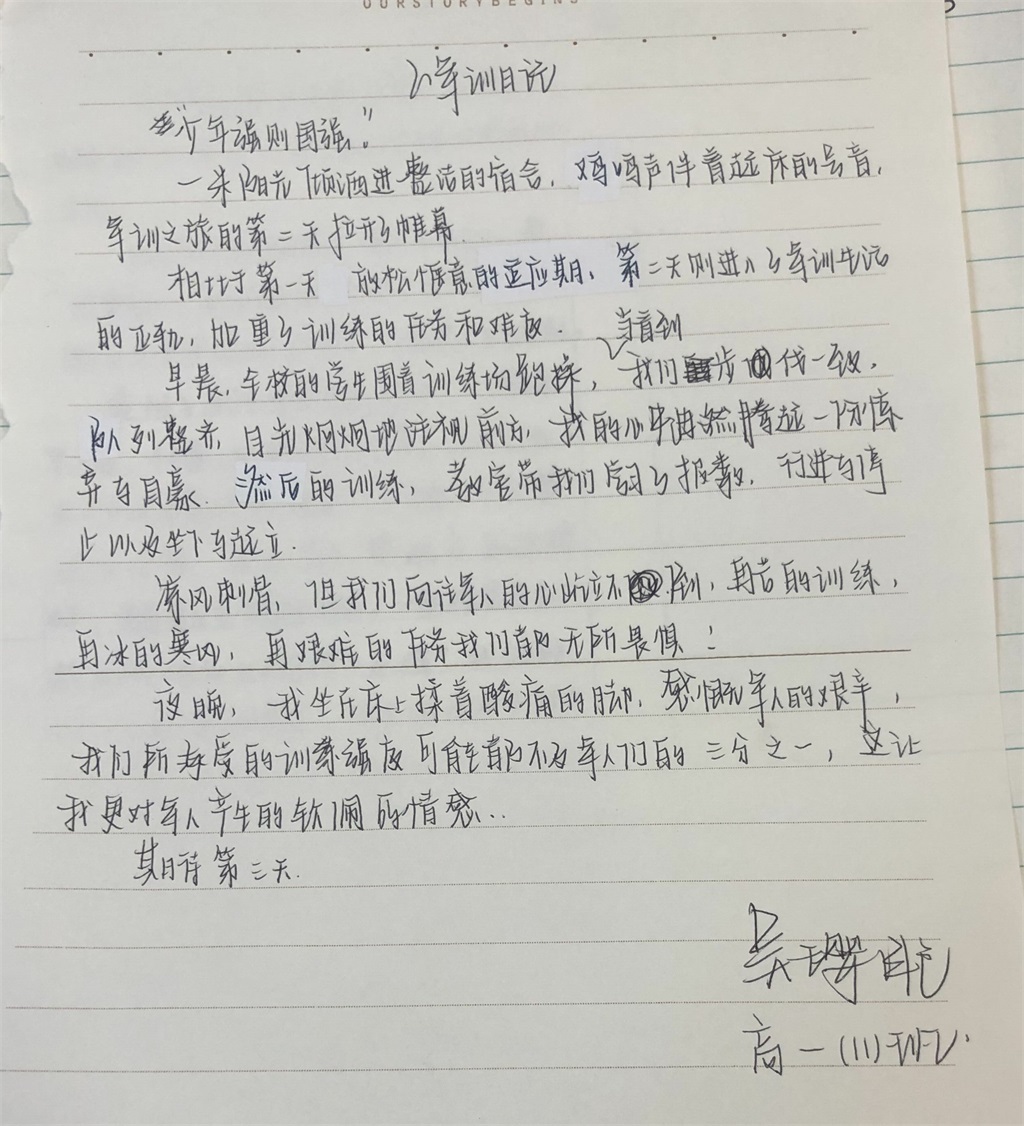 OURSTORYBEGINS
军训日记
“少年强则国强。”
一束阳光倾洒进整洁的宿舍，鸡鸣声伴着起床的号音，
军训之旅的第二天拉开了帷幕。
相比于第一天 放松惬意的适应期，第二天则进入了军训生活
的正轨，加重了训练的任务和难度。
早晨，全校的学生围着训练场跑操，当看到我们步伐一致，
队列整齐，目光炯炯地注视前方，我的心中油然腾起一份振
奋与自豪。然后的训练，教官带我们学习了报数，行进与停
止以及坐下与起立。
寒风刺骨，但我们向往军人的心屹立不倒，再苦的训练，
再冰的寒风，再艰难的任务我们都无所畏惧！
夜晚，我坐在床上揉着酸痛的脚，感慨军人的艰辛，
我们所承受的训练强度可能都不及军人们的三分之一，这让
我更对军人产生的钦佩的情感..
期待第三天.
高一(11)班